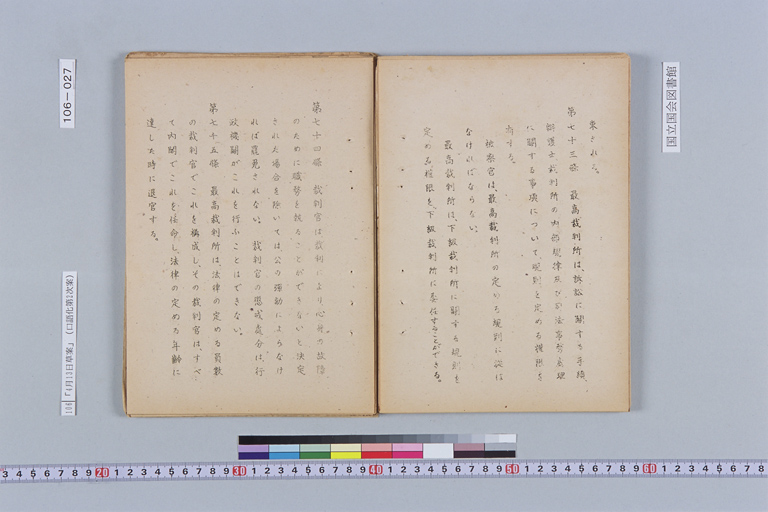 束される。
第七十三條　最高裁判所は、訴訟に関する手続、
辯護士、裁判所の内部規律及び司法事務處理
に関する事項について、規則を定める權限を
有する。
檢察官は、最高裁判所の定める規則に從は
なければならない。
最高裁判所は、下級裁判所に関する規則を
定める權限を、下級裁判所に委任することができる。
第七十四條　裁判官は、裁判により、心身の故障
のために職務を執ることができないと決定
された場合を除いては、公の彈劾によらなけ
れば罷免されない。裁判官の懲戒處分は、行
政機関がこれを行ふことはできない。
第七十五條　最高裁判所は、法律の定める員數
の裁判官でこれを構成し、その裁判官は、すべ
て内閣でこれを任命し、法律の定める年齢に
達した時に退官する。
国立国会図書館
106－027
106「4月13日草案」(口語化第2次案)
3 4 5 6 7 8 9 20 1 2 3 4 5 6 7 8 9 30 1 2 3 4 5 6 7 8 9 40 1 2 3 4 5 6 7 8 9 50 1 2 3 4 5 6 7 8 9 60 1 2 3 4 5 6 7 8